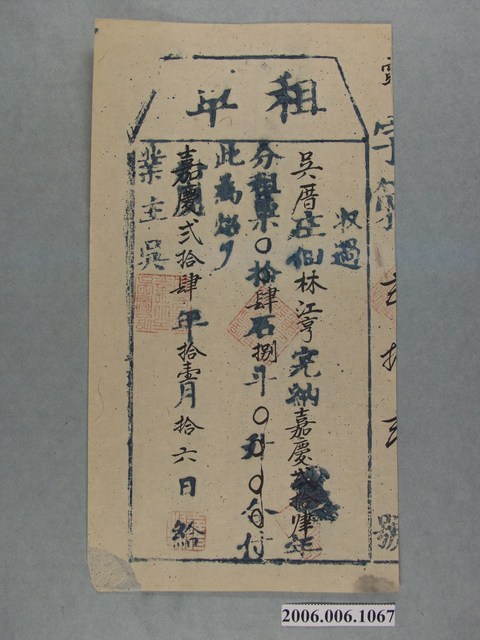 字第
號
租单
收過
吳厝庄佃林江亨完納嘉慶弍拾肆年
分租粟〇拾肆石捌斗〇升〇合付
此為炤
嘉慶弍拾肆年拾壹月拾六日給
業主吳
2006.006.1067